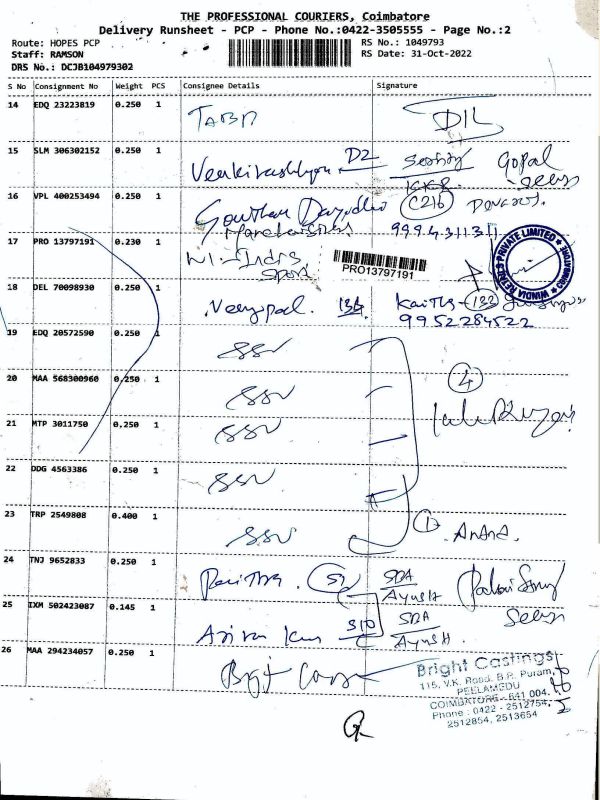 THE PROFESSIONAL COURIERS, Coimbatore
Delivery Runsheet - PCP - Phone No.:0422-3505555 - Page No.:2
Route: HOPES PCP
RS No.: 1049793
Staff: RAMSON
RS Date: 31-Oct-2022
DRS No.: DCJB104979302
S No Consignment No Weight PCS Consignee Details Signature
14 EDQ 23223819 0.250 1
15 SLM 306302152 0.250 1 D2 Gopal
16 VPL 400253494 0.250 1 Gowtham C216
9994311311
17 PRO 13797191 0.230 1
PRO13797191
WINDIA RETREE PRIVATE LIMITED COIMBATORE
18 DEL 70098930 0.250 1 Venugopal. 133 133
9952284522
19 EDQ 20572590 0.250 1 SSV
20 MAA 568300960 0.250 1 SSV 4
21 MTP 3011750 0.250 1 SSV
22 DDG 4563386 0.250 1 SSV
23 TRP 2549808 0.400 1 SSV 1 Anand.
24 TNJ 9652833 0.250 1 Pavithra. 52 SDA
25 IXM 502423087 0.145 1 510 SDA
26 MAA 294234057 0.250 1
Bright Castings
115, V.K. Road, B.R. Puram,
PEELAMEDU
COIMBATORE - 641 004.
Phone : 0422 - 2512754,
2512854, 2513654